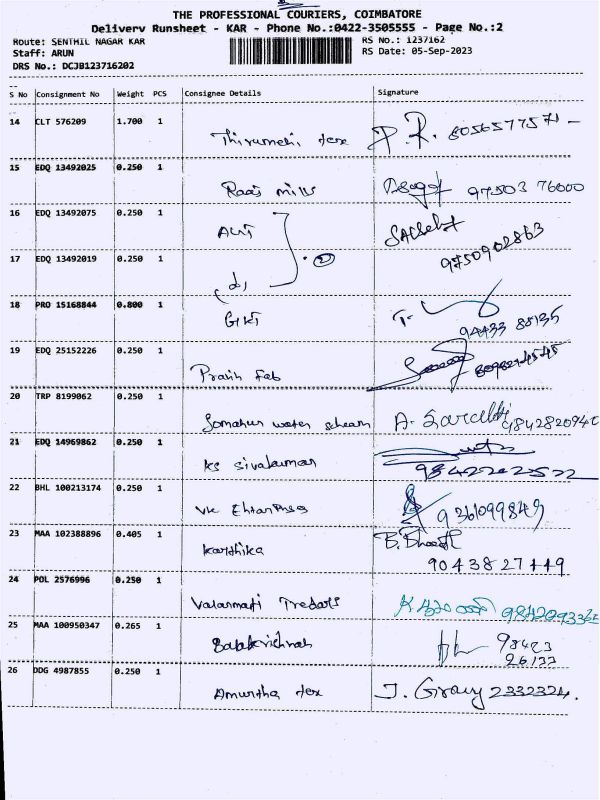 THE PROFESSIONAL COURIERS, COIMBATORE
Delivery Runsheet - KAR - Phone No.:0422-3505555 - Page No.:2
Route: SENTHIL NAGAR KAR
RS No.: 1237162
Staff: ARUN
RS Date: 05-Sep-2023
DRS No.: DCJB123716202
S No Consignment No Weight PCS Consignee Details Signature
14 CLT 576209 1.700 1
Thirumati tex P.R. 8056577571 -
15 EDQ 13492025 0.250 1
Raas mills 97503 76000
16 EDQ 13492075 0.250 1
②
9750902863
17 EDQ 13492019 0.250 1
18 PRO 15168844 0.800 1
T. 94433 88135
19 EDQ 25152226 0.250 1
Pravin Fab
20 TRP 8199062 0.250 1
water A.
21 EDQ 14969862 0.250 1
KS Sivakumar
22 BHL 100213174 0.250 1
VK 9361099849
23 MAA 102388896 0.405 1
Karthika B.
9043827449
24 POL 2576996 0.250 1
Valarmati Tredars
25 MAA 100950347 0.265 1
Balakrishnan 98423
26133
26 DDG 4987855 0.250 1
Amurtha tex J. 2332324.